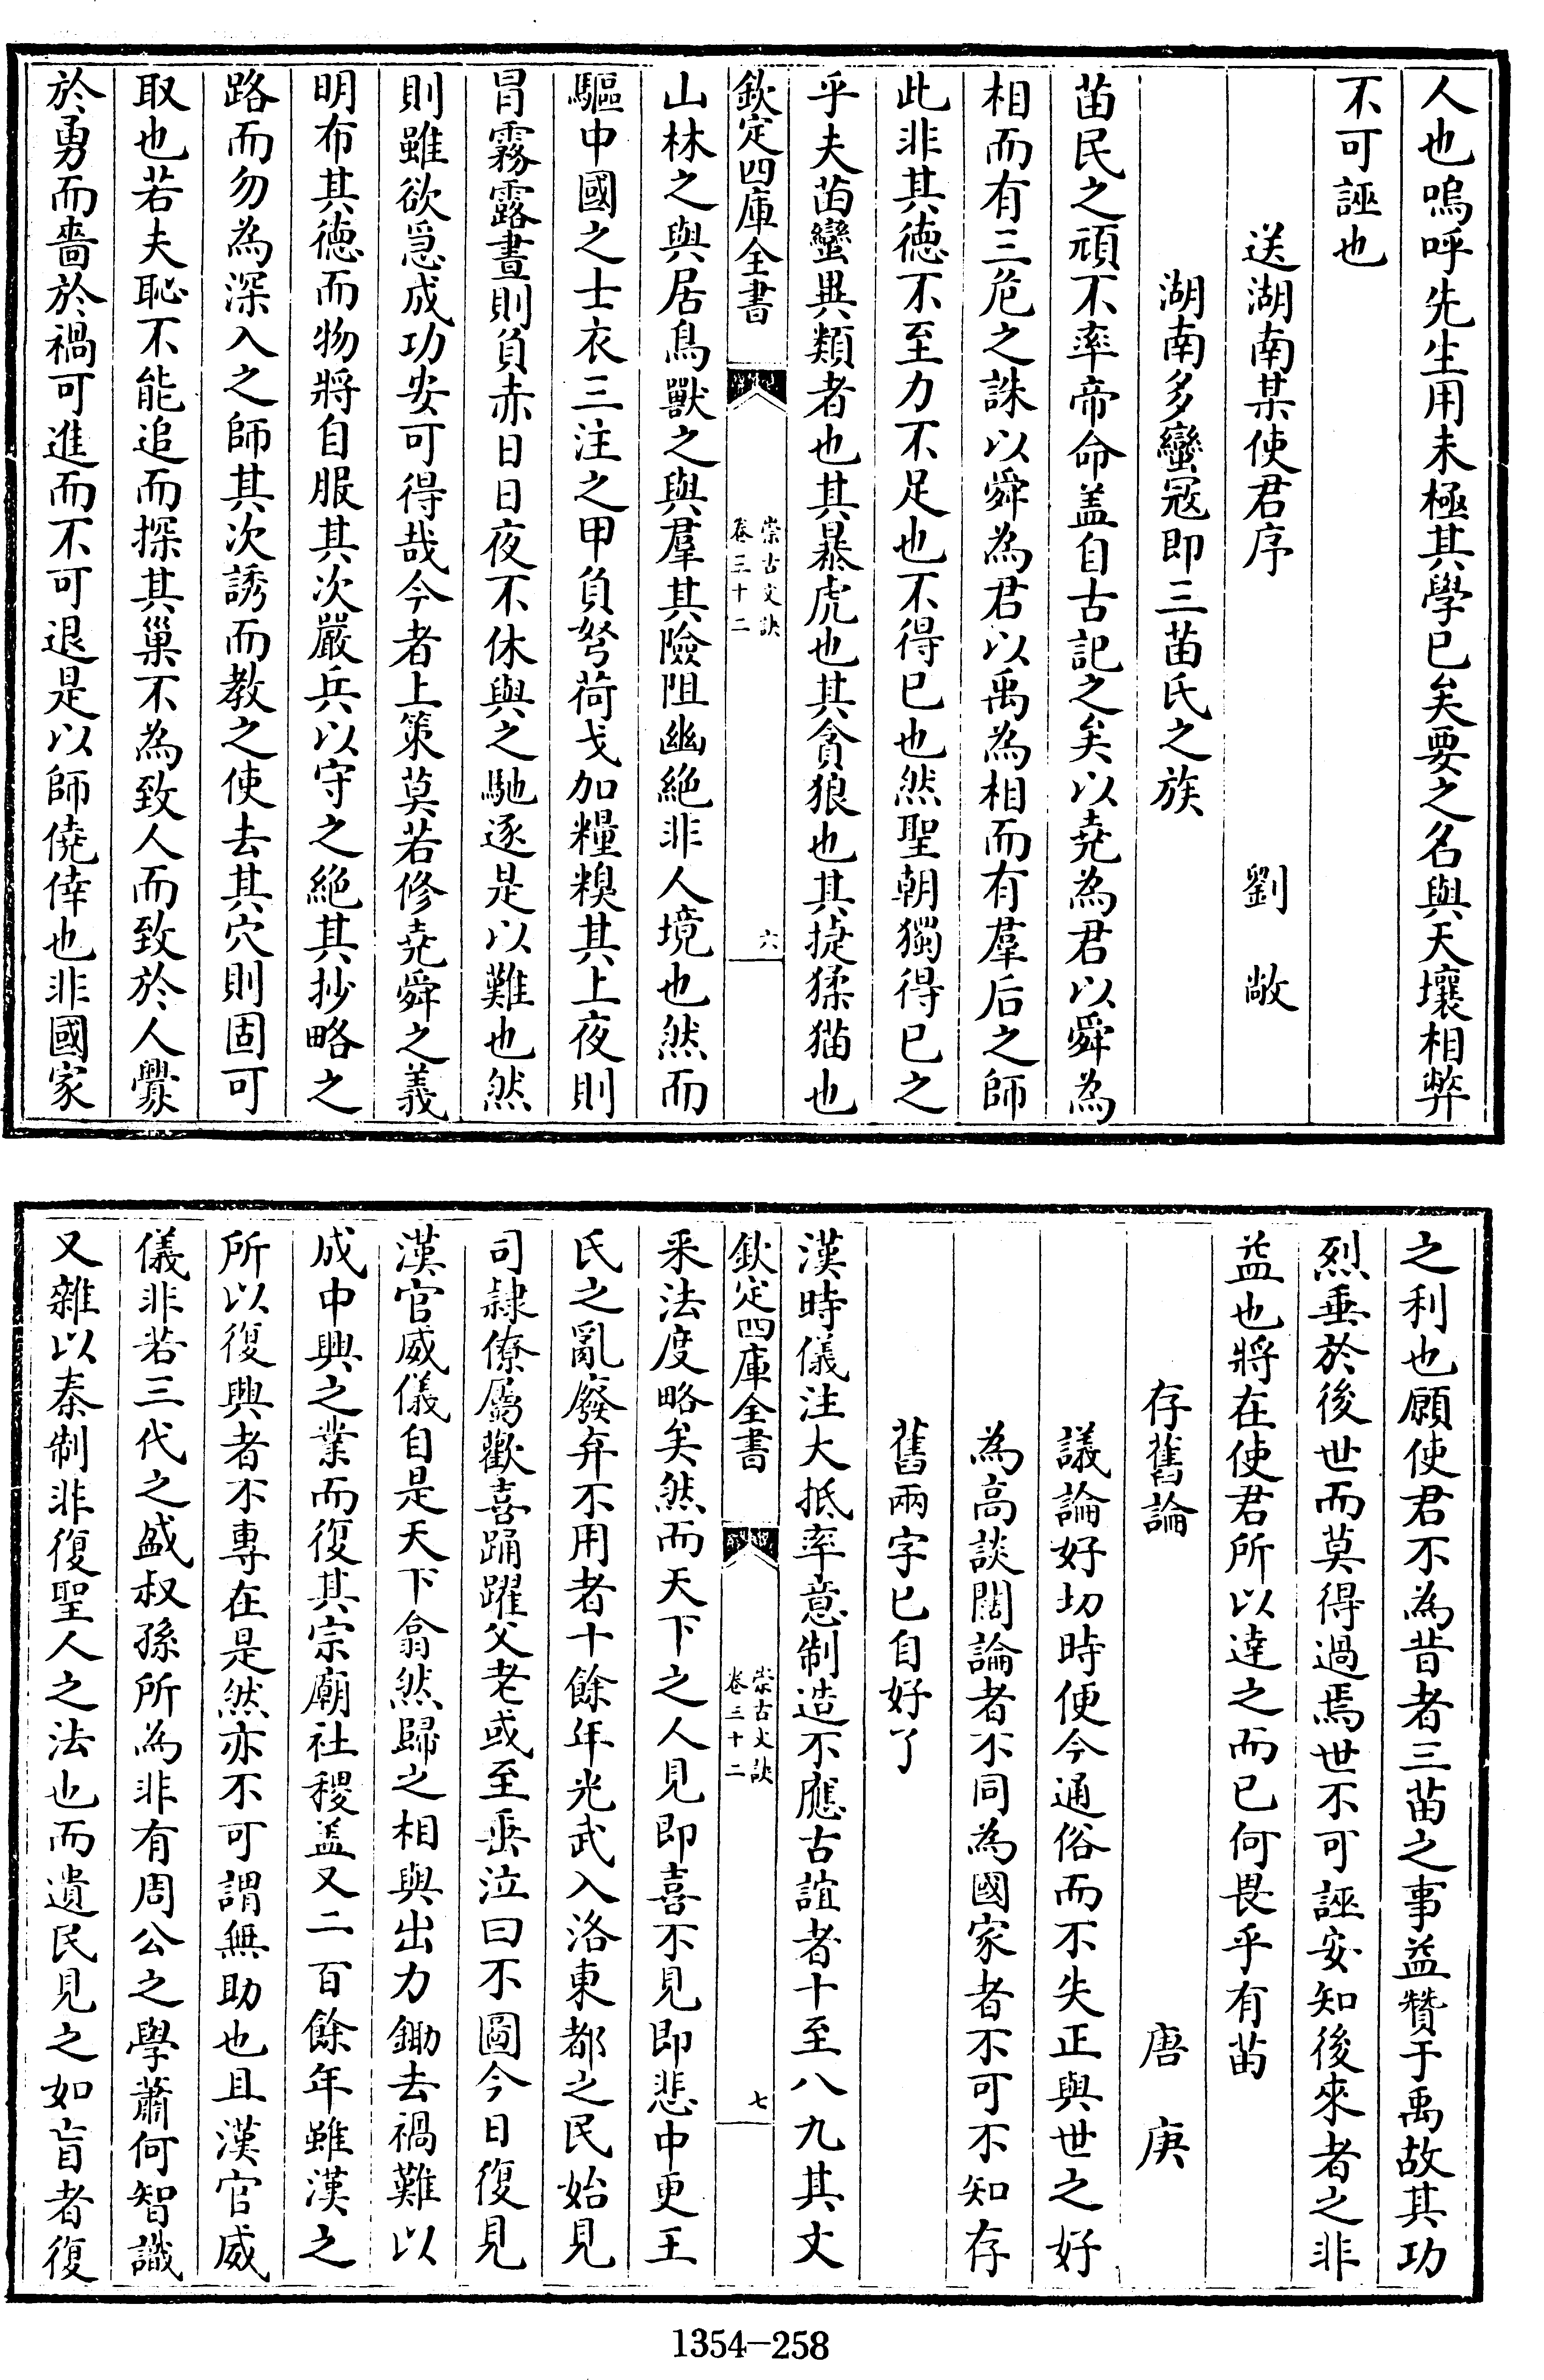 人也嗚呼先生用未極其學已矣要之名與天壤相弊
不可誣也
送湖南某使君序 劉敞
湖南多蠻冦即三苗氏之族
苗民之頑不率帝命盖自古記之矣以堯為君以舜為
相而有三危之誅以舜為君以禹為相而有羣后之師
此非其徳不至力不足也不得已也然聖朝獨得已之
乎夫苗蠻異類者也其暴虎也其貪狼也其捷猱猫也
欽定四庫全書 崇古文訣 卷三十二 六
山林之與居鳥獸之與羣其險阻幽絶非人境也然而
驅中國之士衣三注之甲負弩荷戈加糧糗其上夜則
冒霧露晝則負赤日日夜不休與之馳逐是以難也然
則雖欲急成功安可得哉今者上策莫若修堯舜之義
明布其徳而物將自服其次嚴兵以守之絶其抄略之
路而勿為深入之師其次誘而教之使去其穴則固可
取也若夫恥不能追而探其巢不為致人而致於人釁
於勇而嗇於禍可進而不可退是以師僥倖也非國家
之利也願使君不為昔者三苗之事益贊于禹故其功
烈垂於後世而莫得過焉世不可誣安知後來者之非
益也將在使君所以逹之而已何畏乎有苗
存舊論 唐庚
議論好切時便今通俗而不失正與世之好
為高談闊論者不同為國家者不可不知存
舊兩字已自好了
漢時儀注大抵率意制造不應古誼者十至八九其文
欽定四庫全書 崇古文訣 卷三十二 七
釆法度略矣然而天下之人見即喜不見即悲中更王
氏之亂廢弃不用者十餘年光武入洛東都之民始見
司隷僚屬歡喜踊躍父老或至垂泣曰不圖今日復見
漢官威儀自是天下翕然歸之相與出力鋤去禍難以
成中興之業而復其宗廟社稷盖又二百餘年雖漢之
所以復興者不專在是然亦不可謂無助也且漢官威
儀非若三代之盛叔孫所為非有周公之學蕭何智識
又雜以秦制非復聖人之法也而遺民見之如盲者復
1354-258